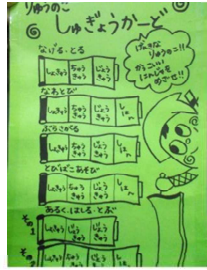 りゅうのこ
しゅぎょうかーど
げんきな
りゅうのこ!!
かっこいい
にんじゃを
めざせ!!
なげる・とる
しょきゅう ちゅうきゅう じょうきゅう
なわとび
しょきゅう ちゅうきゅう じょうきゅう
ぶらさがる
しょきゅう ちゅうきゅう じょうきゅう
とびばこあそび
しょきゅう ちゅうきゅう じょうきゅう
あるく、はしる・とぶ
その1
しょきゅう ちゅうきゅう じょうきゅう
しょきゅう ちゅうきゅう じょうきゅう